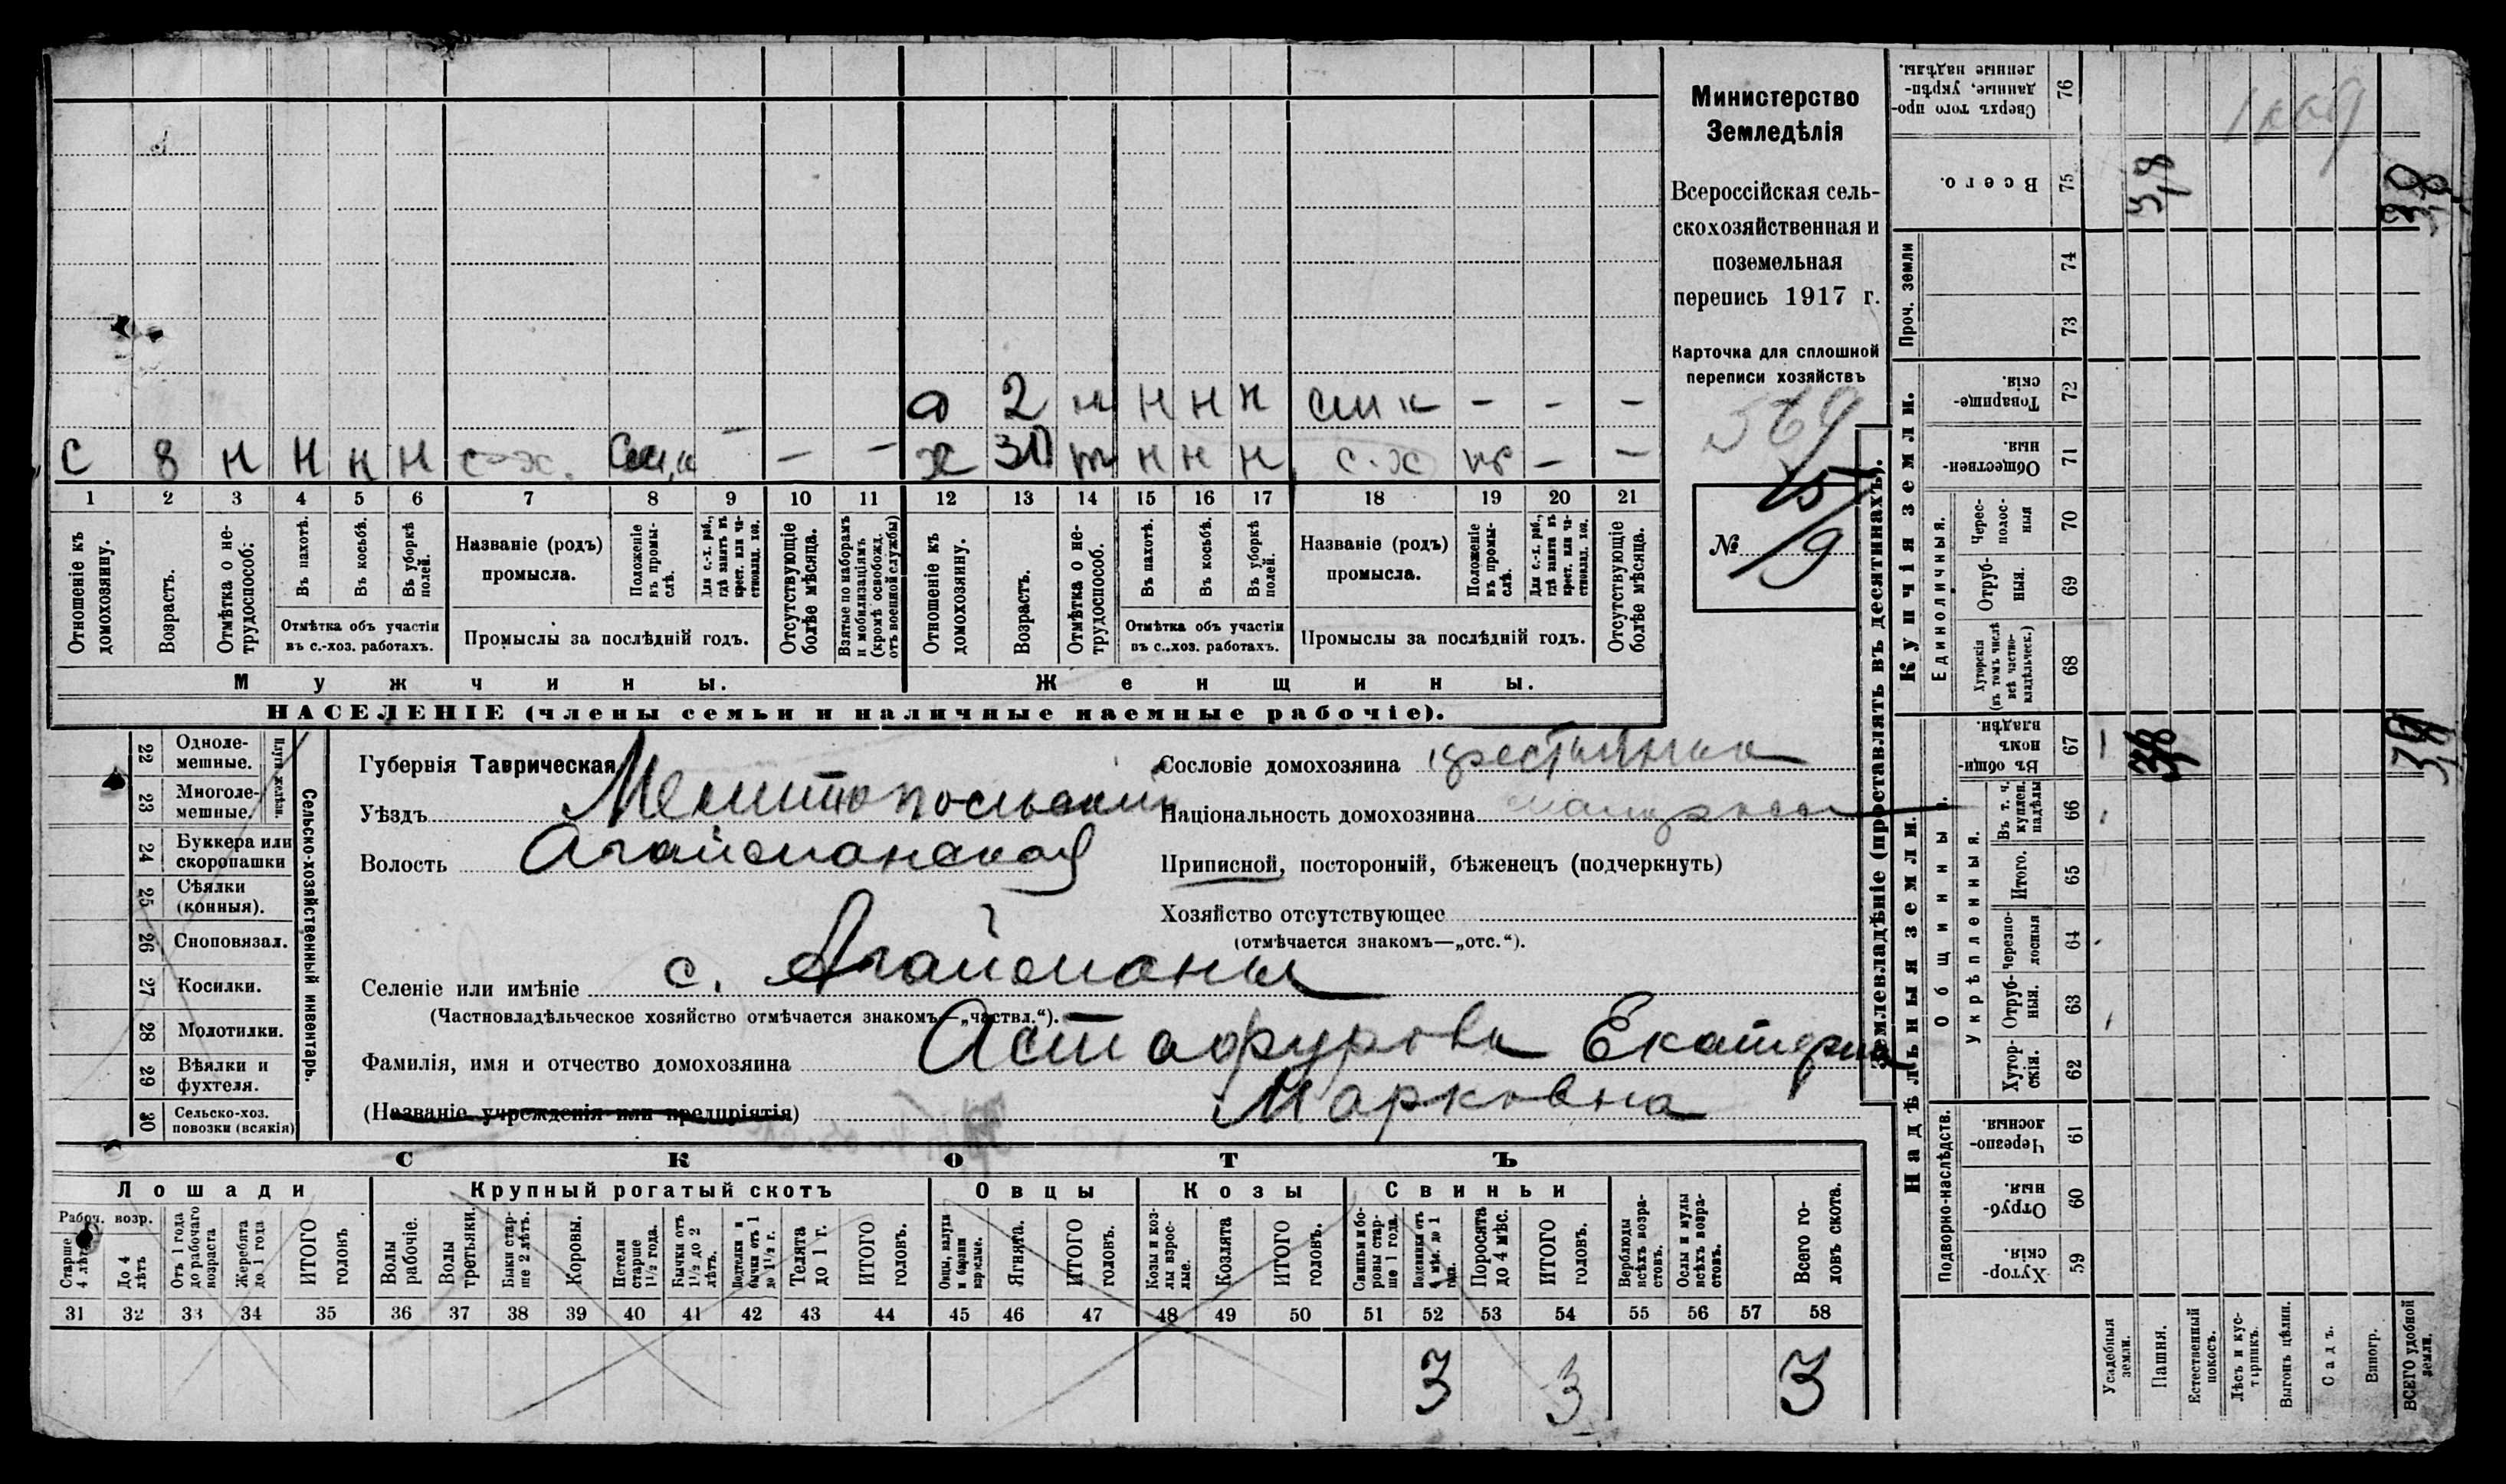 Министерство
Земледѣлія
Всероссійская сель-
скохозяйственная и
поземельная
перепись 1917 г.
Карточка для сплошной
переписи хозяйствъ
569
№ 19
о 2 н н н н - - -
с 8 н н н н с-х. - - - ж 30 н н н с.х - -
1 2 3 4 5 6 7 8 9 10 11 12 13 14 15 16 17 18 19 20 21
Отношеніе къ домохозяину.
Возрастъ.
Отмѣтка о не-трудоспособ:
Въ пахотѣ.
Въ косьбѣ.
Въ уборкѣ полей.
Отмѣтка объ участіи
въ с.-хоз. работахъ.
Названіе (родъ)
промысла.
Положеніе въ промы-слѣ.
Для с.-х. раб., гдѣ занятъ въ крест. или ча-стновлад. хоз.
Промыслы за послѣдній годъ.
Отсутствующіе болѣе мѣсяца.
Взятые по наборамъ и мобилизаціямъ (кромѣ освобожд. отъ военной службы)
Отношеніе къ домохозяину.
Возрастъ.
Отмѣтка о не-трудоспособ.
Въ пахотѣ.
Въ косьбѣ.
Въ уборкѣ полей.
Отмѣтка объ участіи
въ с..хоз. работахъ.
Названіе (родъ)
промысла.
Положеніе въ промы-слѣ.
Для с.-х. раб., гдѣ занята въ крест. или ча-стновлад. хоз.
Промыслы за послѣдній годъ.
Отсутствующіе болѣе мѣсяца.
Мужчины. Женщины.
НАСЕЛЕНІЕ (члены семьи и наличные наемные рабочіе).
22 Одноле-
мешные.
23 Многоле-
мешные.
Плуги желѣзн.
24 Буккера или
скоропашки
25 Сѣялки
(конныя).
26 Сноповязал.
27 Косилки.
28 Молотилки.
29 Вѣялки и
фухтеля.
30 Сельско-хоз.
повозки (всякія)
Сельско-хозяйственный инвентарь.
Губернія Таврическая
Уѣздъ Мелитопольскій
Волость Агайманская
Селеніе или имѣніе с. Агайманы
(Частновладѣльческое хозяйство отмѣчается знакомъ—„частвл.“).
Фамилія, имя и отчество домохозяина Астафурова Екатерина
(Названіе учрежденія или предпріятія) Марковна
Сословіе домохозяина крестьянка
Національность домохозяина малоросс
Приписной, посторонній, бѣженецъ (подчеркнуть)
Хозяйство отсутствующее
(отмѣчается знакомъ—„отс.“).
СКОТЪ
Лошади
Рабоч. возр.
Старше 4 лѣтъ
До 4 лѣтъ
Отъ 1 года до рабочаго возраста
Жеребята до 1 года
ИТОГО головъ
Крупный рогатый скотъ
Волы рабочіе.
Волы третьяки.
Быки стар-ше 2 лѣтъ.
Коровы.
Нетели старше 1½ года.
Бычки отъ 1½ до 2 лѣтъ.
Подтелки и бычки отъ 1 до 1½ г.
Телята до 1 г.
ИТОГО головъ.
Овцы
Овцы, валухи и бараны взрослые.
Ягнята.
ИТОГО головъ.
Козы
Козы и коз-лы взрос-лые.
Козлята
ИТОГО головъ.
Свиньи
Свиньи и бо-ровы стар-ше 1 года.
Подсвинки отъ 4 мѣс. до 1 года.
Поросята до 4 мѣс.
ИТОГО головъ.
Верблюды всѣхъ возра-стовъ.
Ослы и мулы всѣхъ возра-стовъ.
Всего го-ловъ скота.
31 32 33 34 35 36 37 38 39 40 41 42 43 44 45 46 47 48 49 50 51 52 53 54 55 56 57 58
3 3 3
Землевладѣніе (проставлять въ десятинахъ).
Надѣльныя земли.
Купчія земли.
Проч. земли
Подворно-наслѣдств.
Общинныя.
Укрѣпленныя.
Единоличныя.
Сверхъ того про-данные, укрѣп-ленные надѣлы. 76
Всего. 75 3,8 3,8
74
73
Товарище-скія. 72
Обществен-ныя. 71
Черес-полос-ныя 70
Отруб-ныя. 69
Хуторскія (въ томъ числѣ всѣ частно-владѣльческ.) 68
Въ общи-номъ владѣн. 67 3,8 3,8
Въ т. ч. куплен. надѣлы 66
Итого. 65
Черезпо-лосныя 64
Отруб-ныя. 63
Хутор-скія. 62
Черезпо-лосныя. 61
Отруб-ныя. 60
Хутор-скія. 59
Усадебныя земли.
Пашня.
Естественный покосъ.
Лѣсъ и кус-тарникъ.
Выгонъ цѣлин.
Садъ.
Виногр.
ВСЕГО удобной земли.